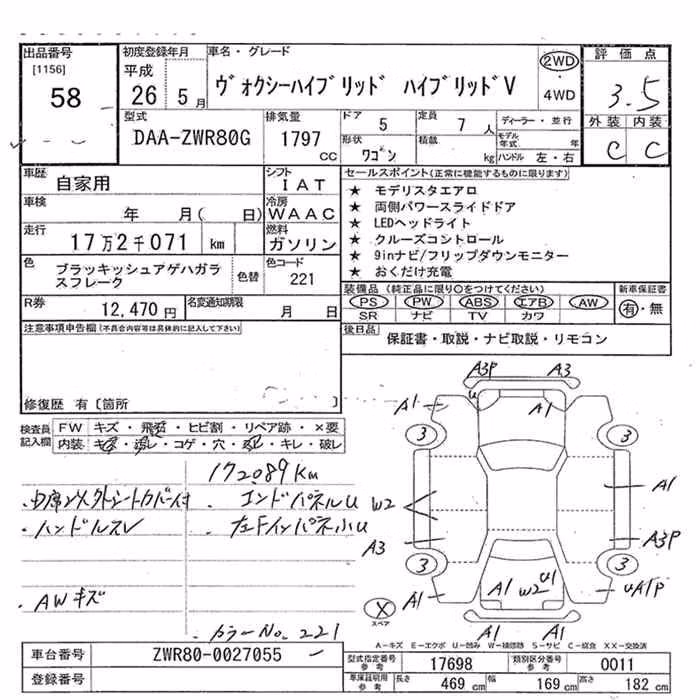 出品番号
[1156]
58
初度登録年月
平成
26 5月
車名・グレード
ヴォクシーハイブリッド ハイブリッドV
2WD
・
4WD
評価点
3.5
外装 内装
C C
型式
DAA-ZWR80G
排気量
1797
CC
ドア
5
定員
7人
ディーラー・並行
形状
ワゴン
積載
kg
モデル年式 年
ハンドル 左・右
車歴
自家用
シフト
IAT
車検
年 月( 日)
冷房
WAAC
走行
17万2千071 km
燃料
ガソリン
色
ブラッキッシュアゲハガラ
スフレーク
色替
色コード
221
R券
12,470円
名変通知期限
月 日
セールスポイント(正常に機能するものに限ります)
★ モデリスタエアロ
★ 両側パワースライドドア
★ LEDヘッドライト
★ クルーズコントロール
★ 9inナビ/フリップダウンモニター
★ おくだけ充電
装備品 (純正品に限り○をつけてください)
PS PW ABS エアB AW
SR ナビ TV カワ
新車保証書
有・無
後日品
保証書・取説・ナビ取説・リモコン
注意事項申告欄(不具合内容等は具体的に記入して下さい)
修復歴 有〔箇所 〕
検査員記入欄
FW キズ・飛石・ヒビ割・リペア跡・×要
内装 キズ・汚レ・コゲ・穴・凹・キレ・破レ
172089Km
・エンドパネルU
・ハンドルスレ
・左FインパネホU
・AWキズ
・カラーNo.221
A3P A3
A1 U A1
3 3
W2 A1
A3 A3P
3 3
A1 A1 W2 U1 UA1P
A1 A1
X
スペア
A-キズ E-エクボ U-凹み W-補修跡 S-サビ C-腐食 XX-交換済
車台番号
ZWR80-0027055
登録番号
型式指定番号
参考
17698
類別区分番号
参考
0011
車庫証明用
参考
長さ
469 cm
幅
169 cm
高さ
182 cm